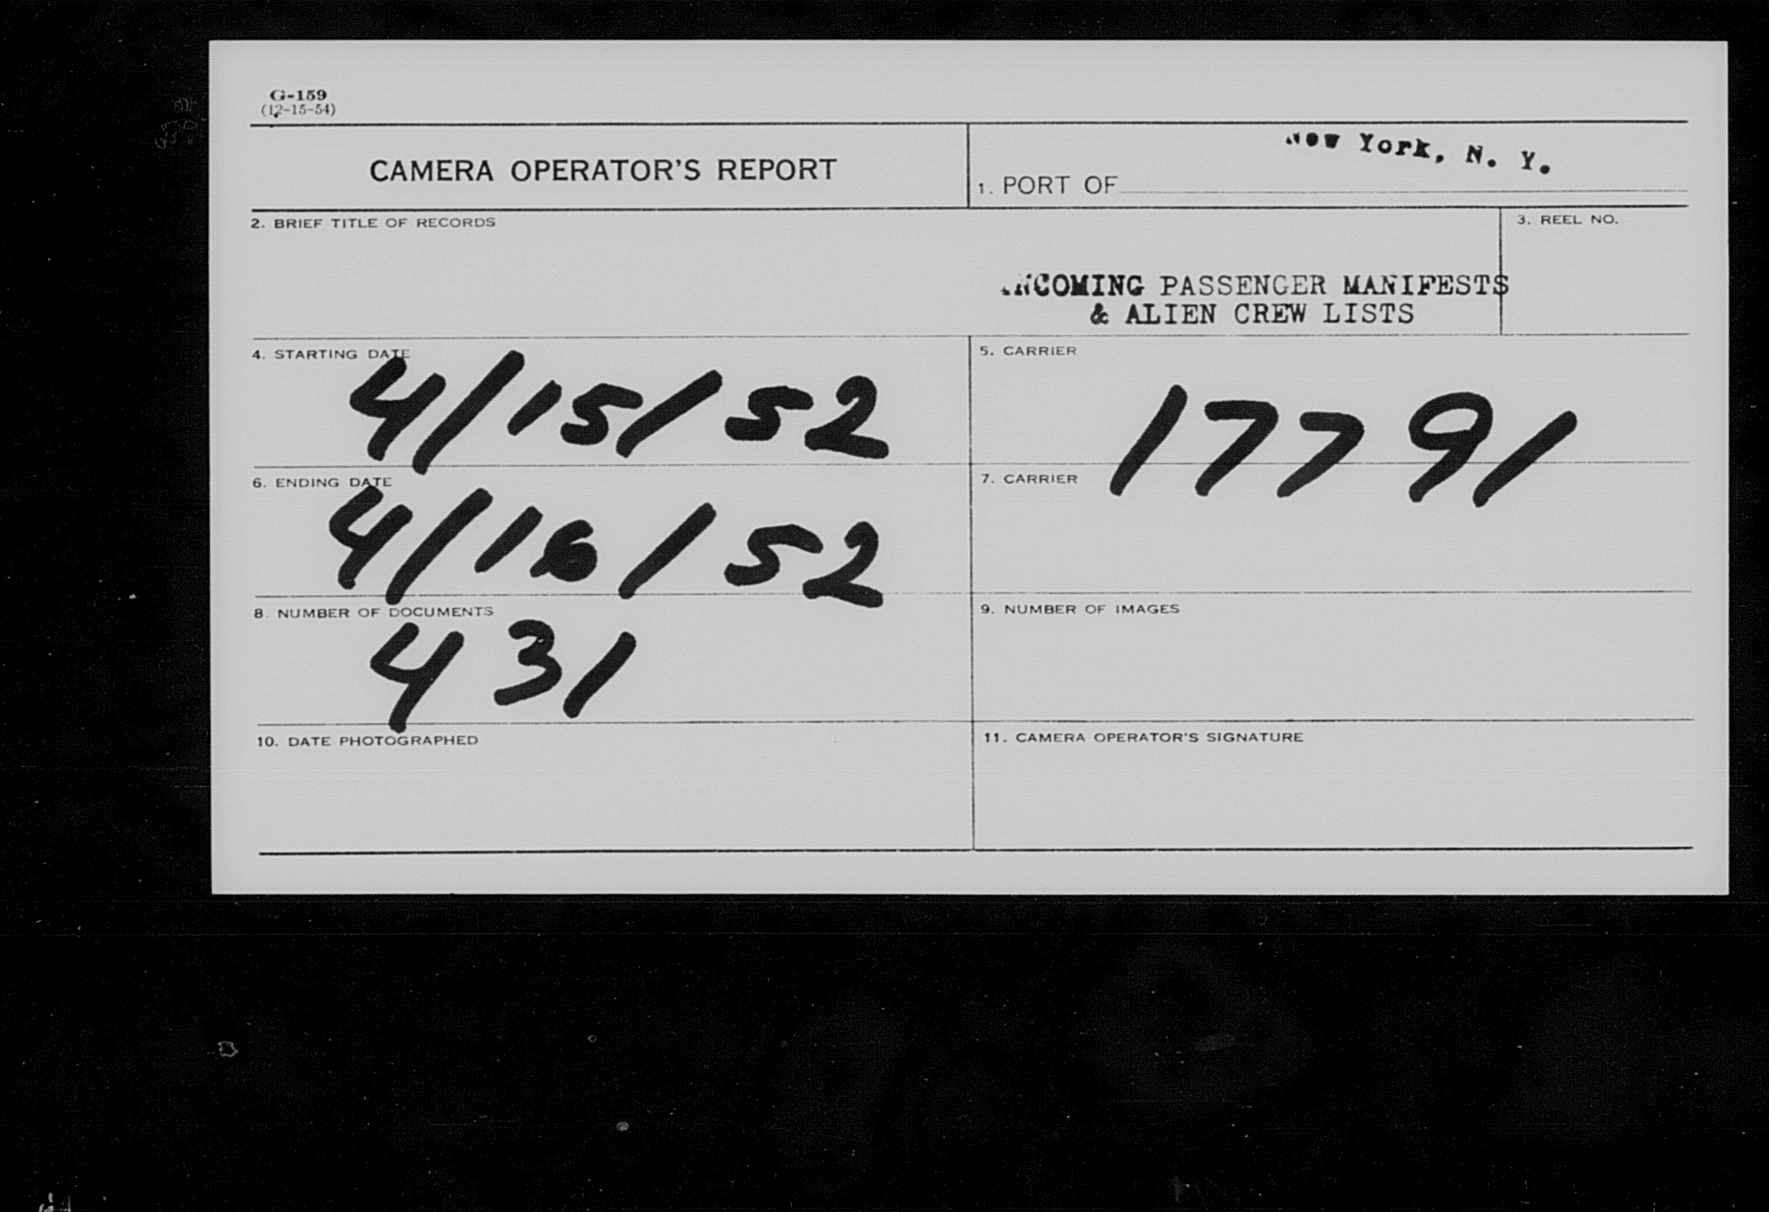 G-159
(12-15-54)
CAMERA OPERATOR'S REPORT
1. PORT OF New York, N. Y.
2. BRIEF TITLE OF RECORDS
3. REEL NO.
INCOMING PASSENGER MANIFESTS
& ALIEN CREW LISTS
4. STARTING DATE
4/15/52
5. CARRIER
17791
6. ENDING DATE
4/16/52
7. CARRIER
8. NUMBER OF DOCUMENTS
431
9. NUMBER OF IMAGES
10. DATE PHOTOGRAPHED
11. CAMERA OPERATOR'S SIGNATURE